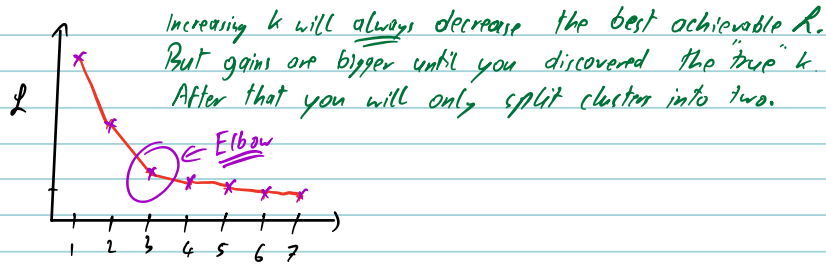 Increasing k will always decrease the best achievable L.
But gains are bigger until you discovered the "true" k.
After that you will only split clusters into two.
L
Elbow
1 2 3 4 5 6 7